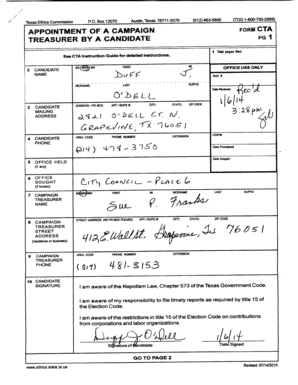 Texas Ethics Commission P.O. Box 12070 Austin, Texas 78711-2070 (512) 463-5800 (TDD 1-800-735-2989)
APPOINTMENT OF A CAMPAIGN TREASURER BY A CANDIDATE
FORM CTA
PG 1
See CTA Instruction Guide for detailed instructions.
1 Total pages filed:
2 CANDIDATE NAME
MS / MRS / MR FIRST MI
DUFF J.
NICKNAME LAST SUFFIX
O'DELL
OFFICE USE ONLY
Date Received Rec'd
1/6/14
3:28 pm
3 CANDIDATE MAILING ADDRESS
ADDRESS / PO BOX; APT / SUITE #; CITY; STATE; ZIP CODE
2821 O'DELL CT. N.
GRAPEVINE, TX 76051
4 CANDIDATE PHONE
AREA CODE PHONE NUMBER EXTENSION
(214) 478-3750
Date Processed
Date Imaged
5 OFFICE HELD
(if any)
6 OFFICE SOUGHT
(if known)
CITY COUNCIL - PLACE 6
7 CAMPAIGN TREASURER NAME
MS / MRS / MR FIRST MI NICKNAME LAST SUFFIX
Sue P. Franks
8 CAMPAIGN TREASURER STREET ADDRESS
(residence or business)
STREET ADDRESS (NO PO BOX PLEASE); APT / SUITE #; CITY; STATE; ZIP CODE
412 E. Wall St. Grapevine, Tx 76051
9 CAMPAIGN TREASURER PHONE
AREA CODE PHONE NUMBER EXTENSION
(817) 481-8153
10 CANDIDATE SIGNATURE
I am aware of the Nepotism Law, Chapter 573 of the Texas Government Code.
I am aware of my responsibility to file timely reports as required by title 15 of the Election Code.
I am aware of the restrictions in title 15 of the Election Code on contributions from corporations and labor organizations.
Duff J O'Dell 1/6/14
Signature of Candidate Date Signed
GO TO PAGE 2
www.ethics.state.tx.us Revised 07/14/2010